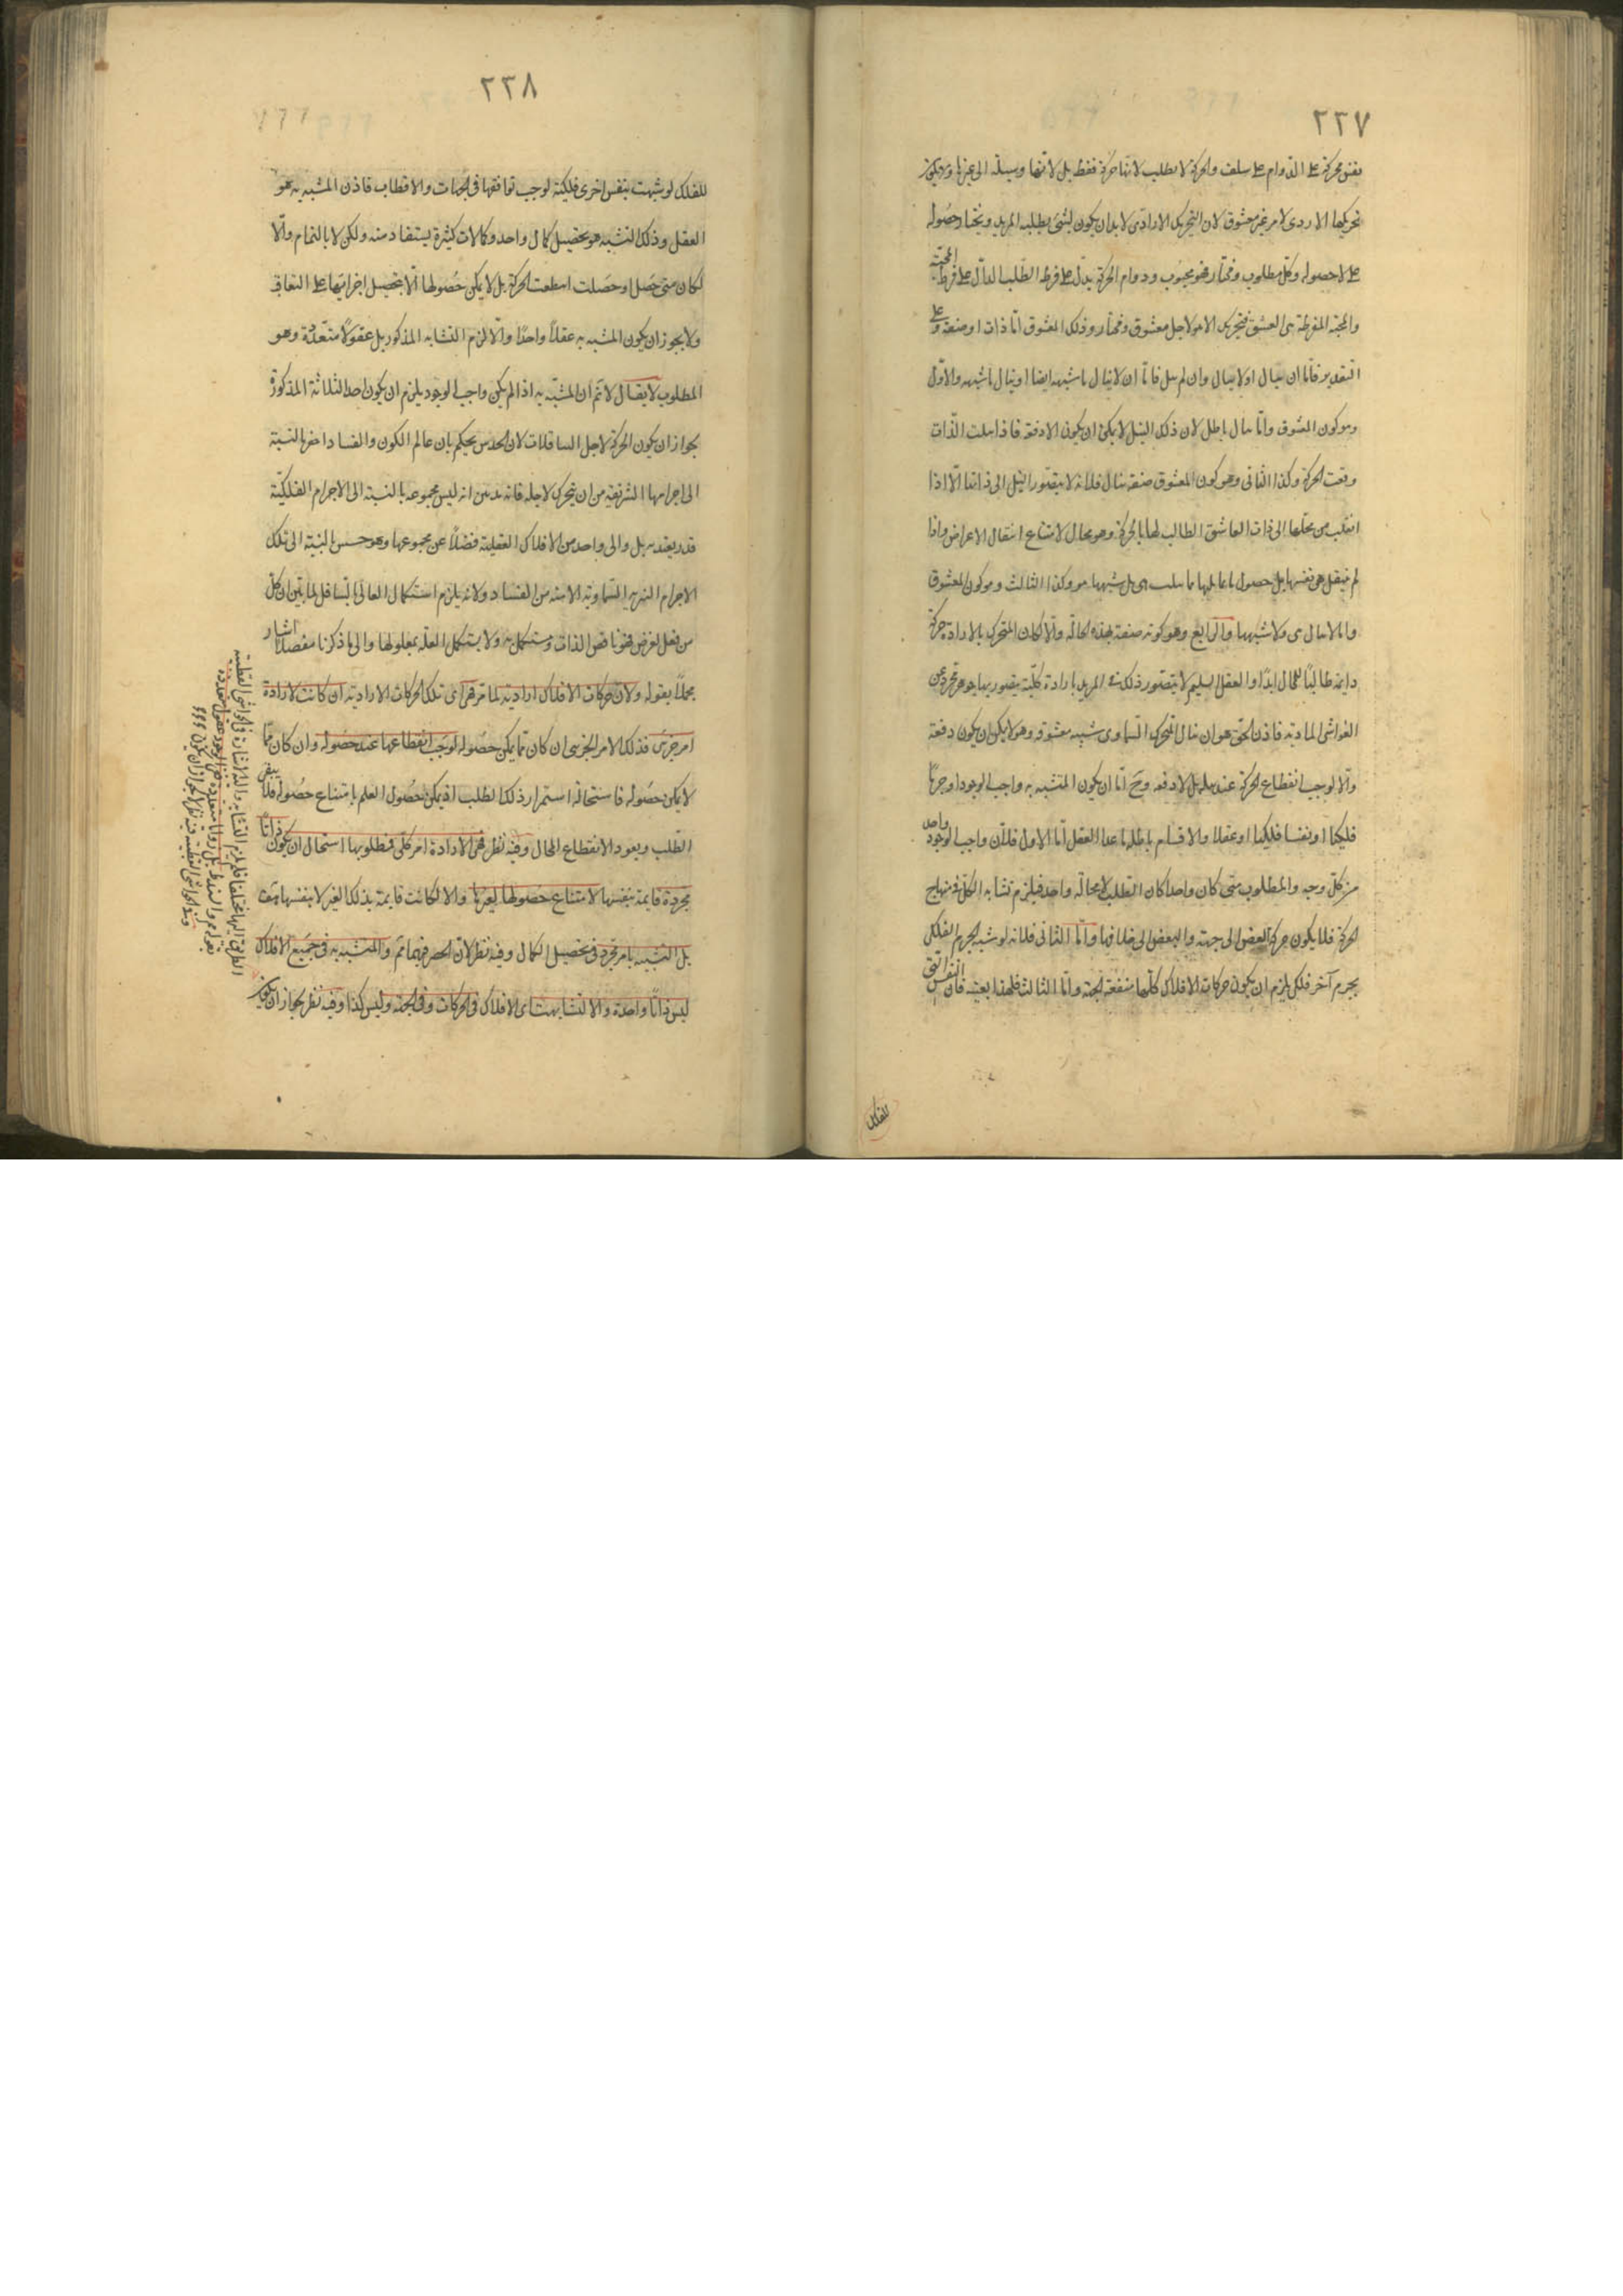 ٢٢٧
نفس محركة على الدوام على سلف والحركة لا تطلب لانها حركة فقط بل لانها وسيلة الى غيرها ولا يكون
تحريكها الاردى لامر غير معشوق لان التحريك الارادى لا بد ان يكون لشئ يطلبه المريد ويختار حصوله
على لا حصوله وكل مطلوب ومختار فهو محبوب ودوام الحركة يدل على فرط الطلب الدال على فرط المحبة
والمحبة المفرطة هى العشق فتحريك الا هو لاجل معشوق ومختار وذلك المعشوق اما ذات او صفة وعلى
التقدير فاما ان ينال او لا ينال وان لم ينل فاما ان لا ينال ما شبهه ايضا او ينال ما شبهه والاول
وهو كون المعشوق ذاتا ينال باطل لان ذلك النيل لا يمكن ان يكون الا دفعة فاذا نيلت الذات
وقفت الحركة وكذا الثانى وهو كون المعشوق صفة تنال فلانه لا يتصور النيل الى ذاتها الا اذا
انتقلت من محلها الى ذات العاشق الطالب لها بالحركة وهو محال لامتناع انتقال الاعراض واذا
لم ينتقل هى نفسها بل حصول ما يماثلها فما نيلت هى بل شبهها هو وكذا الثالث وهو كون المعشوق
ذاتا لا ينال هى ولا شبهها والرابع وهو كونه صفة بهذه الحالة والا لكان المتحرك بالارادة حركة
دائمة طالبا للمحال ابدا والعقل السليم لا يتصور ذلك من المريد بارادة كلية يتصور بها جوهر مجرد عن
الغواشى المادية فاذن الحق هو ان ينال المتحرك السماوى شبه معشوقه وهو لا يمكن ان يكون دفعة
والا لوجب انقطاع الحركة عند نيله بل لا دفعة وح اما ان يكون المتشبه به واجب الوجود او جرما
فلكيا او نفسا فلكيا او عقلا والاقسام باطلة ما عدا العقل اما الاول فلان واجب الوجود واحد
من كل وجه والمطلوب متى كان واحدا كان الطلب لا محالة واحد فيلزم تشابه الكل فى منهاج
الحركة فلا يكون حركة البعض الى جهة والبعض الى خلافها واما الثانى فلانه لو شبه الجرم الفلكى
بجرم آخر فلكى يلزم ان يكون حركات الافلاك كلها متفقة الجهة واما الثالث فلهذا بعينه فان النفس التى
للفلك
٢٢٨
للفلك لو شبهت بنفس اخرى فلكية لوجب توافقها فى الجهات والاقطاب فاذن المشبه به هو
العقل وذلك التشبه هو تحصيل كمال واحد وكمالات كثيرة يستفاد منه ولكن لا بالتمام والا
لكان متى حصل او حصلت انقطعت الحركة بل لا يمكن حصولها الا بتحصيل اجزائها على التعاقب
ولا يجوز ان يكون المشبه به عقلا واحدا والا لزم التشابه المذكور بل عقولا متعددة وهو
المطلوب لا يقال لا نم ان المشبه به اذا لم يكن واجب الوجود يلزم ان يكون احد الثلاثة المذكورة
لجواز ان يكون الحركة لاجل السافلات لان الحدس يحكم بان عالم الكون والفساد احقر بالنسبة
الى اجرامها الشريفة من ان يتحرك لاجله فانه بدس انه ليس مجموعه بالنسبة الى الاجرام الفلكية
قدر يعتد به بل والى واحد من الافلاك العقلية فضلا عن مجموعها وهو خسيس بالنسبة الى تلك
الاجرام النيرة السماوية الآمنة من الفساد ولانه يلزم استكمال العالى بالسافل لما تبين ان كل
من فعل لغرض فهو ناقص الذات ومستكمل به ولا يستكمل العلة بمعلولها والى ما ذكرنا مفصلا اشار
مجملا بقوله ولان حركات الافلاك ارادية لما مر فهى اى تلك الحركات الارادية ان كانت لارادة
امر جزئى فذلك الامر الجزئى ان كان مما يمكن حصوله لوجب انقطاعها عند حصوله وان كان مما
لا يمكن حصوله فاستحالة استمرار ذلك الطلب اذ يمكن حصول العلم بامتناع حصوله فلا يبقى
الطلب ويعود الانقطاع المحال وفيه نظر فهى لارادة امر كلى فمطلوبها استحال ان يكون ذاتا
مجردة قايمة بنفسها لامتناع حصولها لغيرها والا لكانت قايمة بذلك الغير لا بنفسها هف
بل التشبه بامر مجرد فى تحصيل الكمال وفيه نظر لان الحصر فيهما مم والمتشبه به فى جميع الافلاك
ليس ذاتا واحدة والا لتشابهت اى الافلاك فى الحركات وفى الجهة وليس كذا وفيه نظر لجواز ان يكون